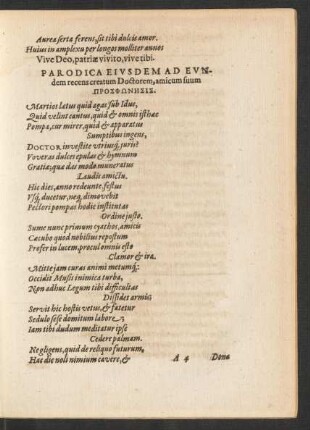 Aurea serta ferens, sit tibi dulcis amor.
Huius in amplexu per longos molliter annos
Vive Deo, patriæ vivito, vive tibi.
PARODICA EIVSDEM AD EVN-
dem recens creatum Doctorem, amicum suum
ΠΡΟΣΦΩΝΗΣΙΣ.
Martiis latus quid agas sub Idus,
Quid velint cantus, quid & omnis isthæc
Pompa, cur mirer, quid & apparatus
Sumptibus ingens,
DOCTOR investite utriusq́; juris?
Voveras dulces epulas & hymnum
Gratiæ, qua das modo muneratus
Laudis amictu.
His dies, anno redeunte, festus
Usq́; ducetur, neq́; dimovebit
Pectori pompas hodie institutas
Ordine justo.
Sume nunc primum cyathos, amicis
Cæcubo quod nobilius repostum
Profer in lucem, procul omnis esto
Clamor & ira.
Mitte jam curas animi metumq́;
Occidit Musis inimica turba,
Non adhuc Legum tibi difficultas
Dissidet armis
Servit hic hostis vetus, & fatetur
Sedulo sese domitum labore,
Iam tibi dudum meditatur ipse
Cedere palmam.
Negligens, quid de reliquo futurum,
Hac die noli nimium cavere, &
A 4 Dona